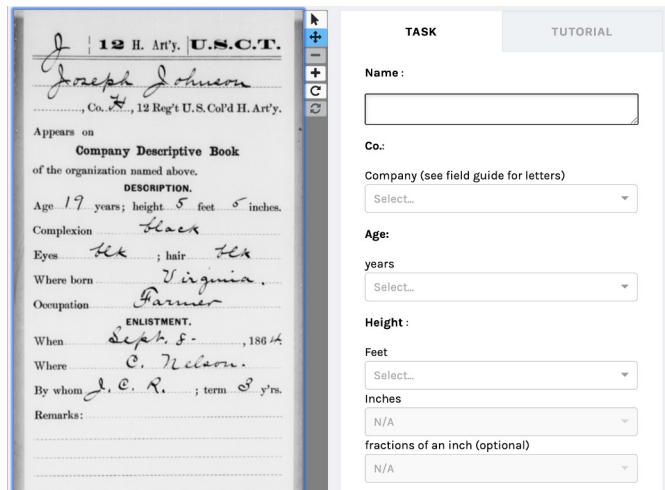 J | 12 H. Art'y. | U.S.C.T.
Joseph Johnson
, Co. H, 12 Reg't U.S. Col'd H. Art'y.
Appears on
Company Descriptive Book
of the organization named above.
DESCRIPTION.
Age 19 years; height 5 feet 5 inches.
Complexion black
Eyes blk ; hair blk
Where born Virginia.
Occupation Farmer
ENLISTMENT.
When Sept. 8 - , 1864.
Where C. Nelson.
By whom J. C. R. ; term 3 y'rs.
Remarks:
TASK
TUTORIAL
Name :
Co.:
Company (see field guide for letters)
Select...
Age:
years
Select...
Height :
Feet
Select...
Inches
N/A
fractions of an inch (optional)
N/A